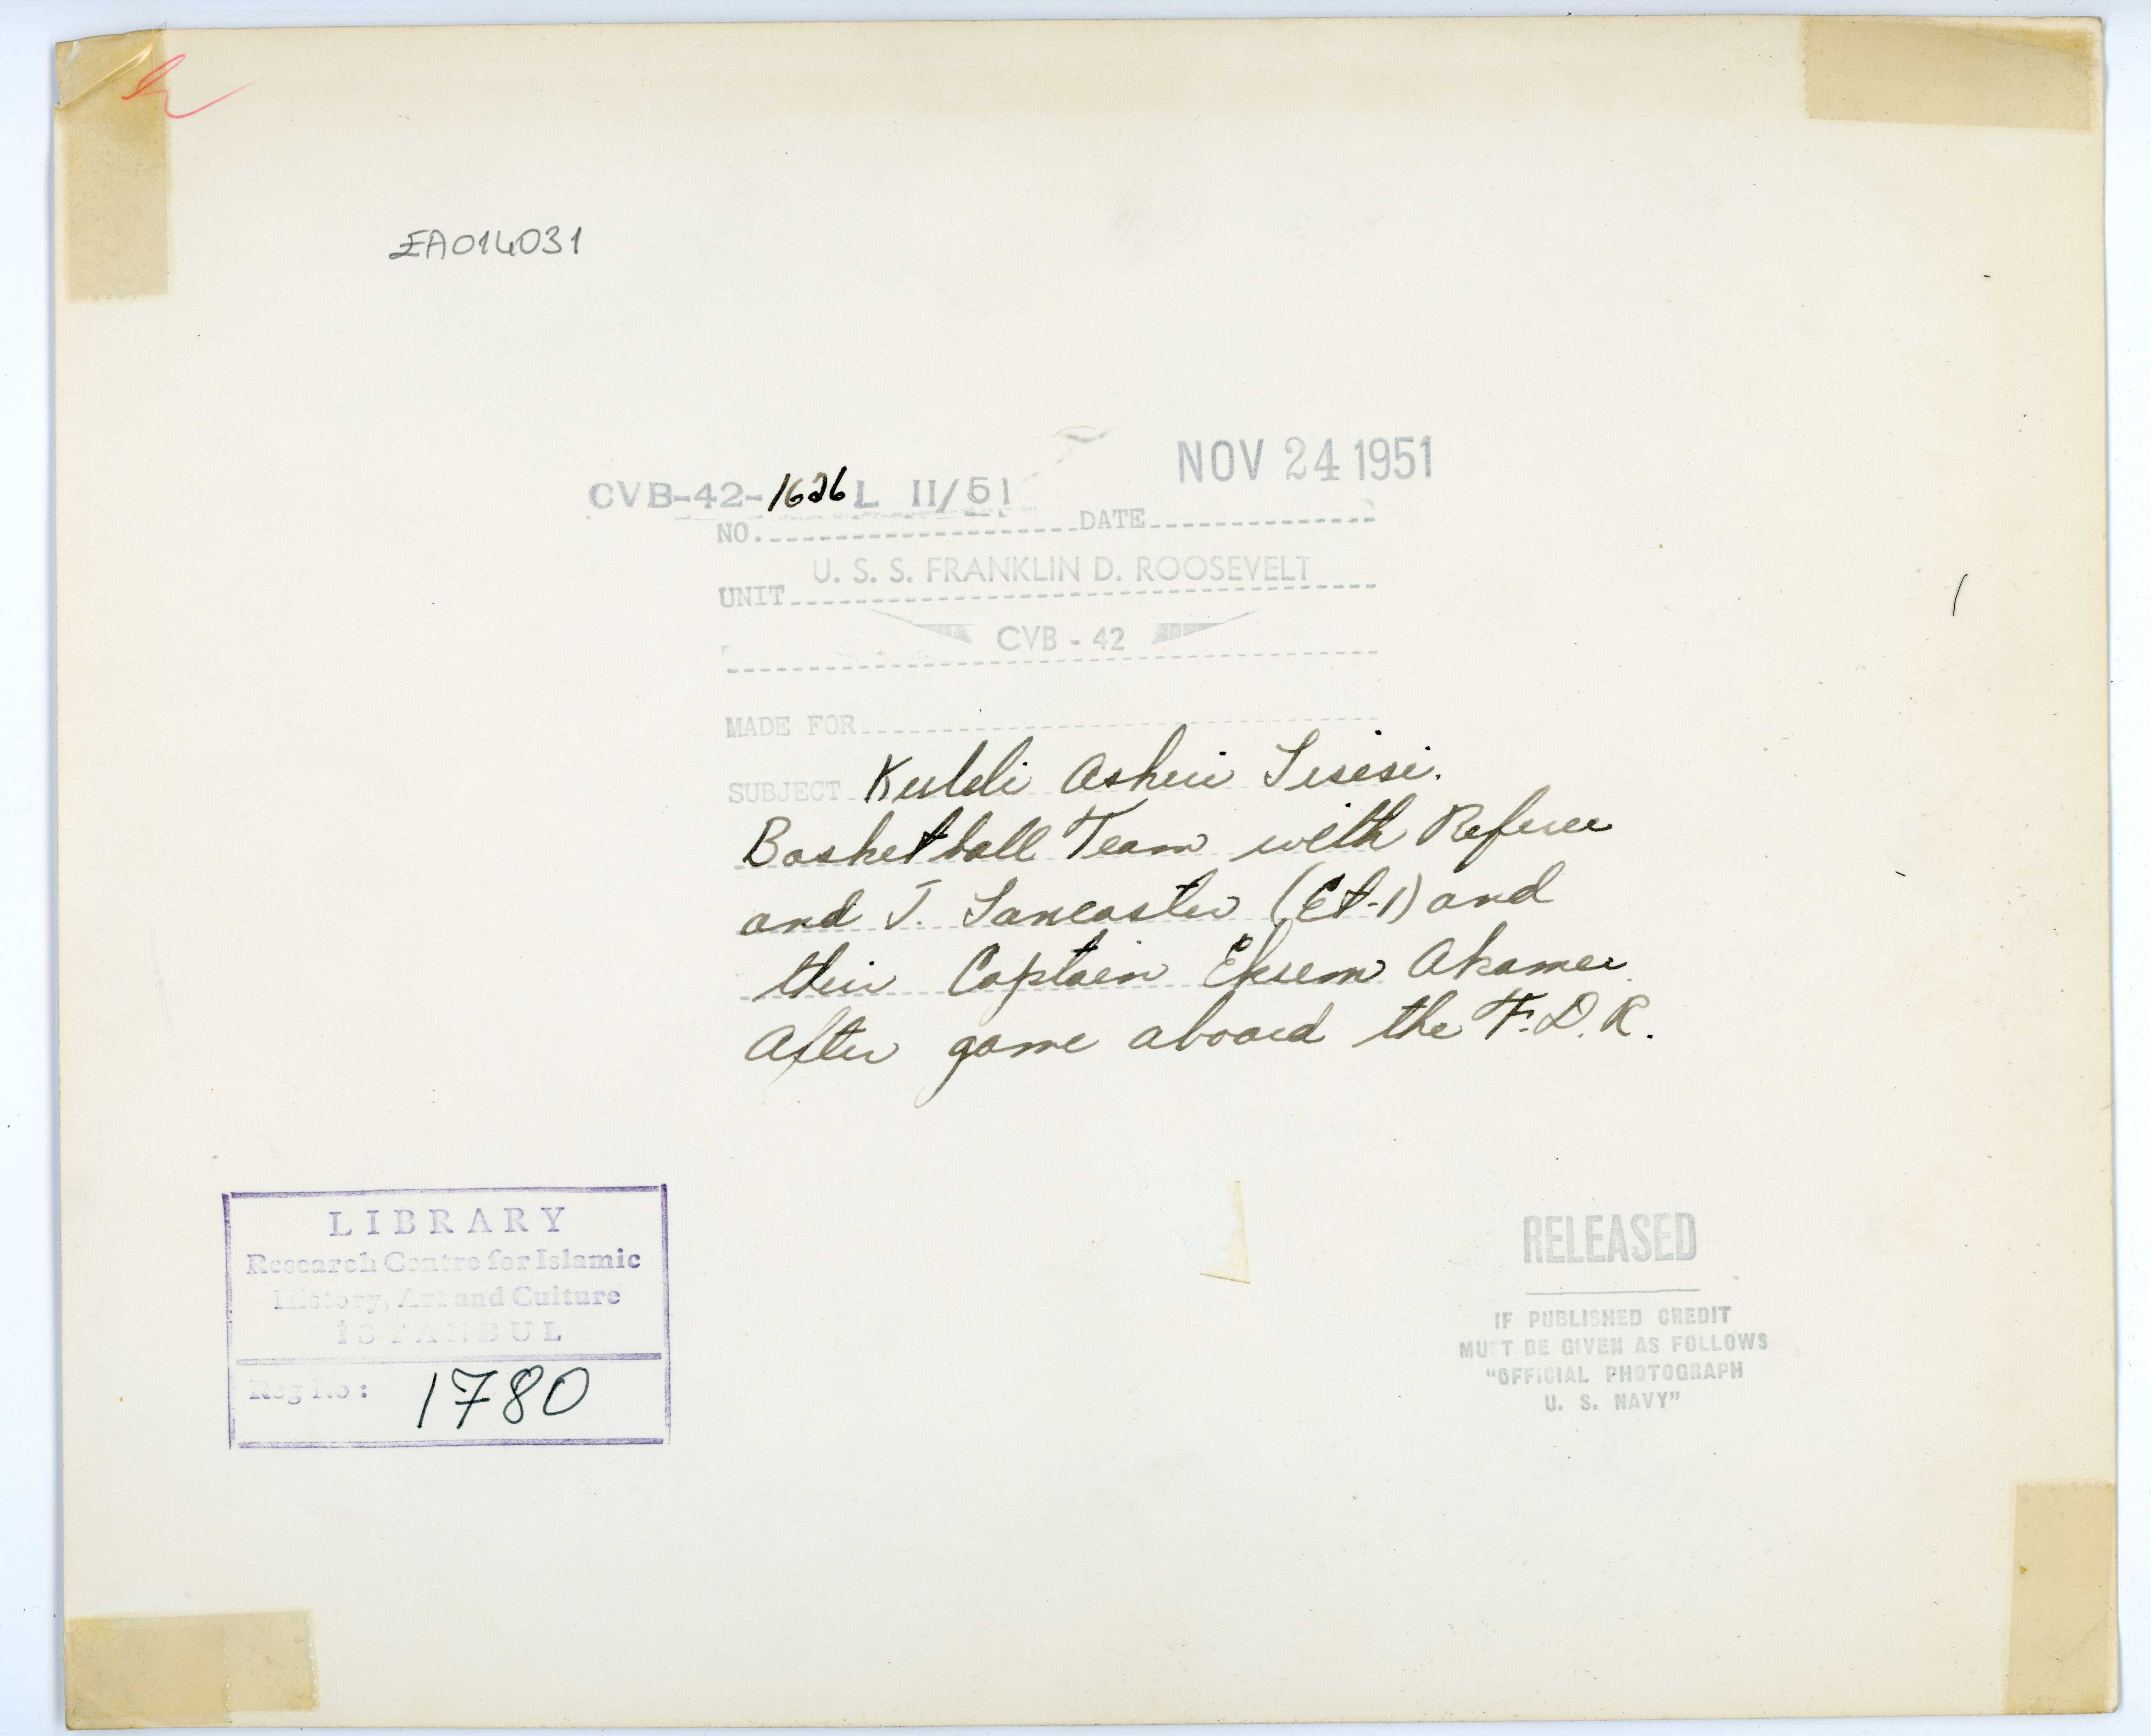 EA014031
NOV 24 1951
CVB-42-1626 L II/51
NO. DATE
U. S. S. FRANKLIN D. ROOSEVELT
UNIT
CVB - 42
MADE FOR
SUBJECT Kuleli Asheri Lisesi.
Basketball Team with Referee
and J. Lancaster (Et-1) and
their Captain Ekrem
After game aboard the F.D.R.
LIBRARY
Research Centre for Islamic
History, Art and Culture
İSTANBUL
Reg No: 1780
RELEASED
IF PUBLISHED CREDIT
MUST BE GIVEN AS FOLLOWS
"OFFICIAL PHOTOGRAPH
U. S. NAVY"